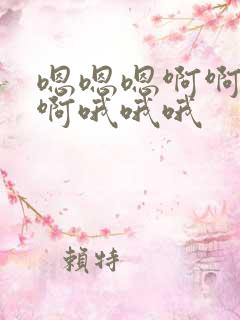 嗯嗯嗯啊啊
啊哦哦哦
賴特